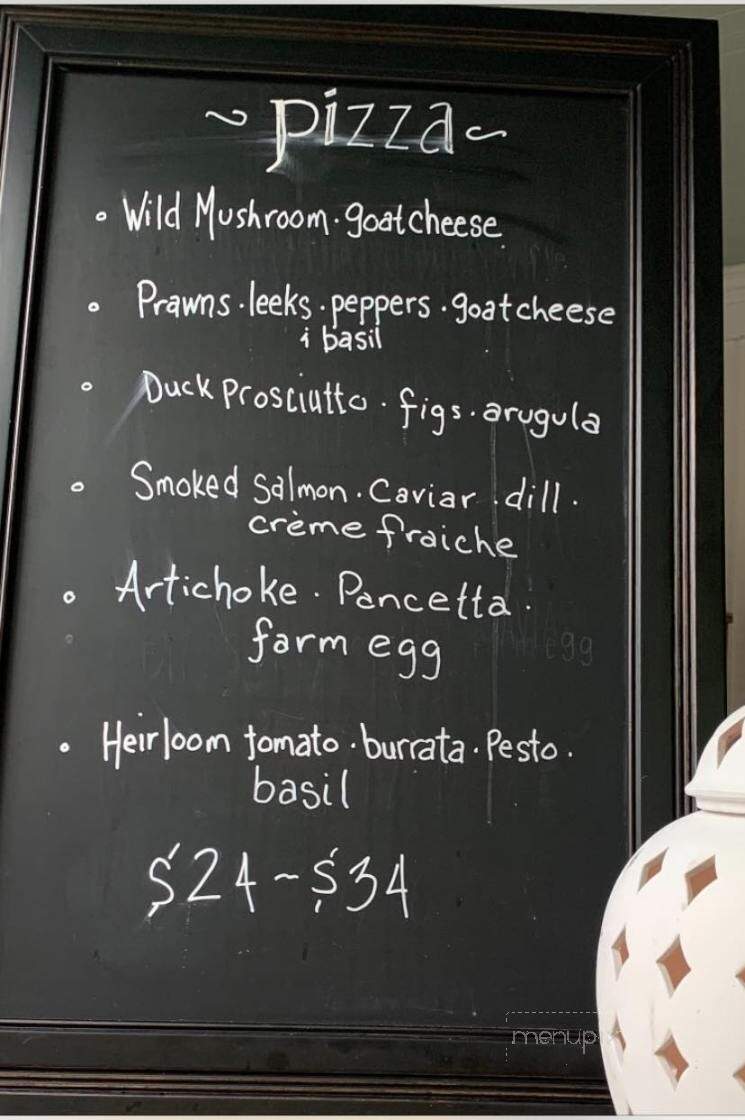 ~ pizza ~
• Wild Mushroom · goat cheese
• Prawns · leeks · peppers · goat cheese
& basil
• Duck Prosciutto · figs · arugula
• Smoked Salmon · Caviar · dill ·
crème fraiche
• Artichoke · Pancetta ·
farm egg
egg
• Heirloom tomato · burrata · Pesto ·
basil
$24 ~ $34
menup